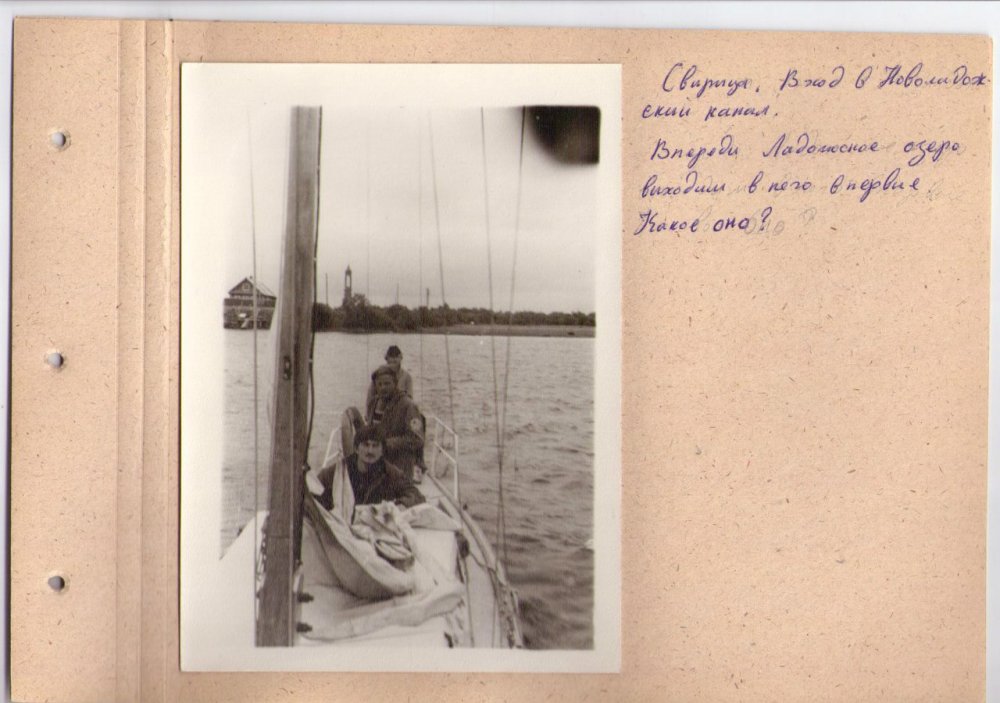 Свирица. Вход в Новоладож-
ский канал.
Впереди Ладожское озеро
выходим в него впервые.
Какое оно?